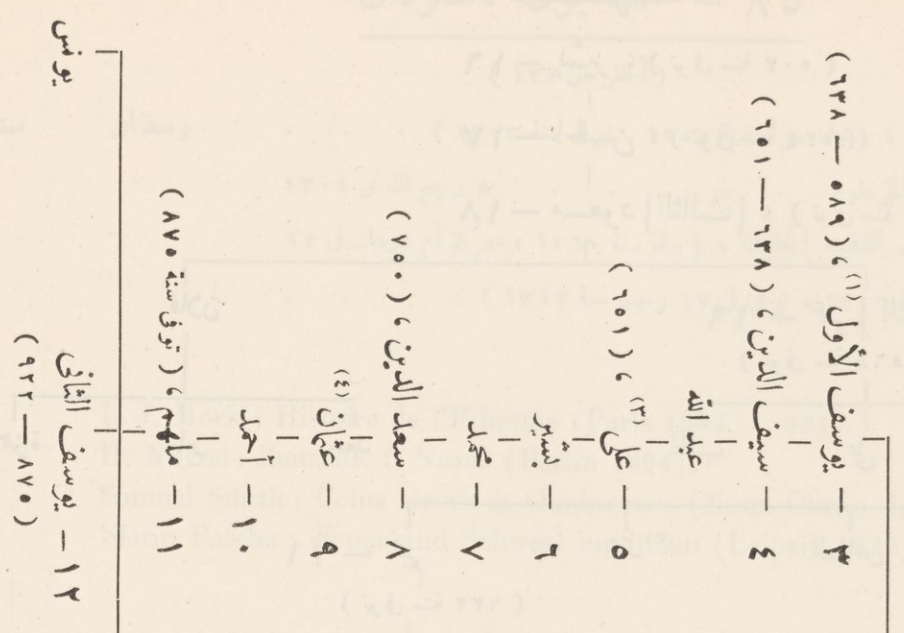 ٣ — يوسف الأول (١) ، (٥٨٩ — ٦٣٨)
٤ — سيف الدين ، (٦٣٨ — ٦٥١)
عبد الله
٥ — على (٢) ، (٦٥١)
٦ — رشيد
٧ — محمد
٨ — سعد الدين ، (٧٥٠)
٩ — عثمان (٤)
١٠ —
١١ — ، (توفى سنة ٨٧٥)
١٢ — يوسف الثانى
(٨٧٥ — ٩٢٢)
يونس